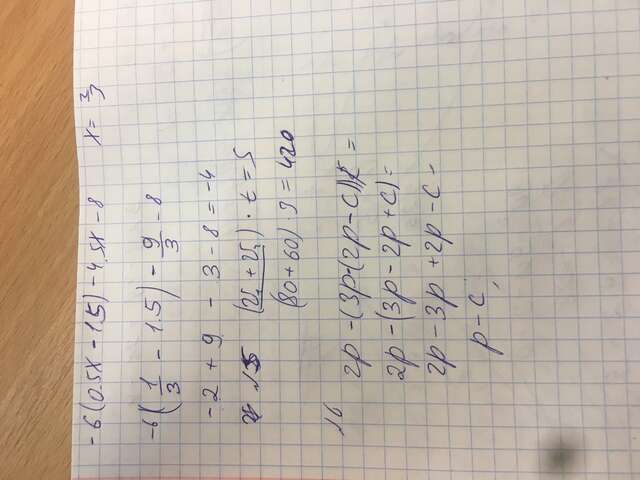 -6(0.5x - 1.5) - 4.5x - 8 x = 2/3
-6(1/3 - 1.5) - 9/3 - 8
-2 + 9 - 3 - 8 = -4
№5 (V₁ + V₂) · t = S
(80+60) · 3 = 420
№6
2p - (3p-(2p-c)) =
2p - (3p - 2p + c) =
2p - 3p + 2p - c =
p - c;